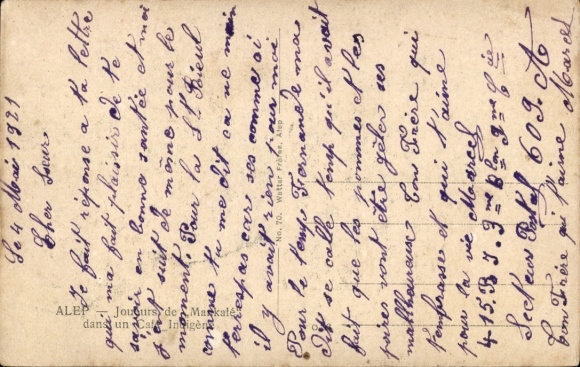 Le 4 Mai 1921
Cher Sœur
Je fait réponse a ta lettre
qui ma fait plaisir de te
savoir en bonne santée et moi
je suit de même pour le
moment. Pour la St
comme tu me dit ca ne
pas car ses comme si
il y avait rien pour moi
Pour le temp Fernande ma
dit se calle temp qu'il avait
fait que les pommes et les
poires vont être gêler ses
malheureux Ton Frère qui
t'embrasse et qui t'aime
pour la vie Marcel
415. B
Secteur Postal 609. A
Ton Frère qui t'aime Marcel
ALEP - Joueurs de "Mankalé"
dans un Café Indigène
No. 70. Wattar Frères, Alep